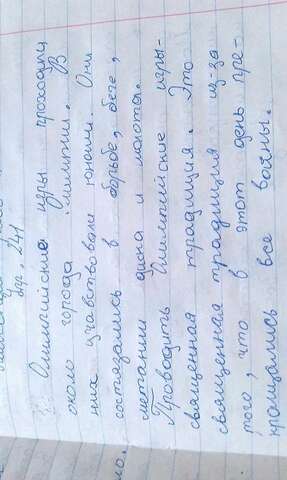 Упр. 241
Олимпийские игры проходили
около города Олимпии. В
них учавствовали юноши. Они
состязались в борьбе, беге,
метании диска и молота.
Проводить Олимпийские игры-
священная традиция. Это
священная традиция из-за
того, что в этот день пре-
кращались все войны.